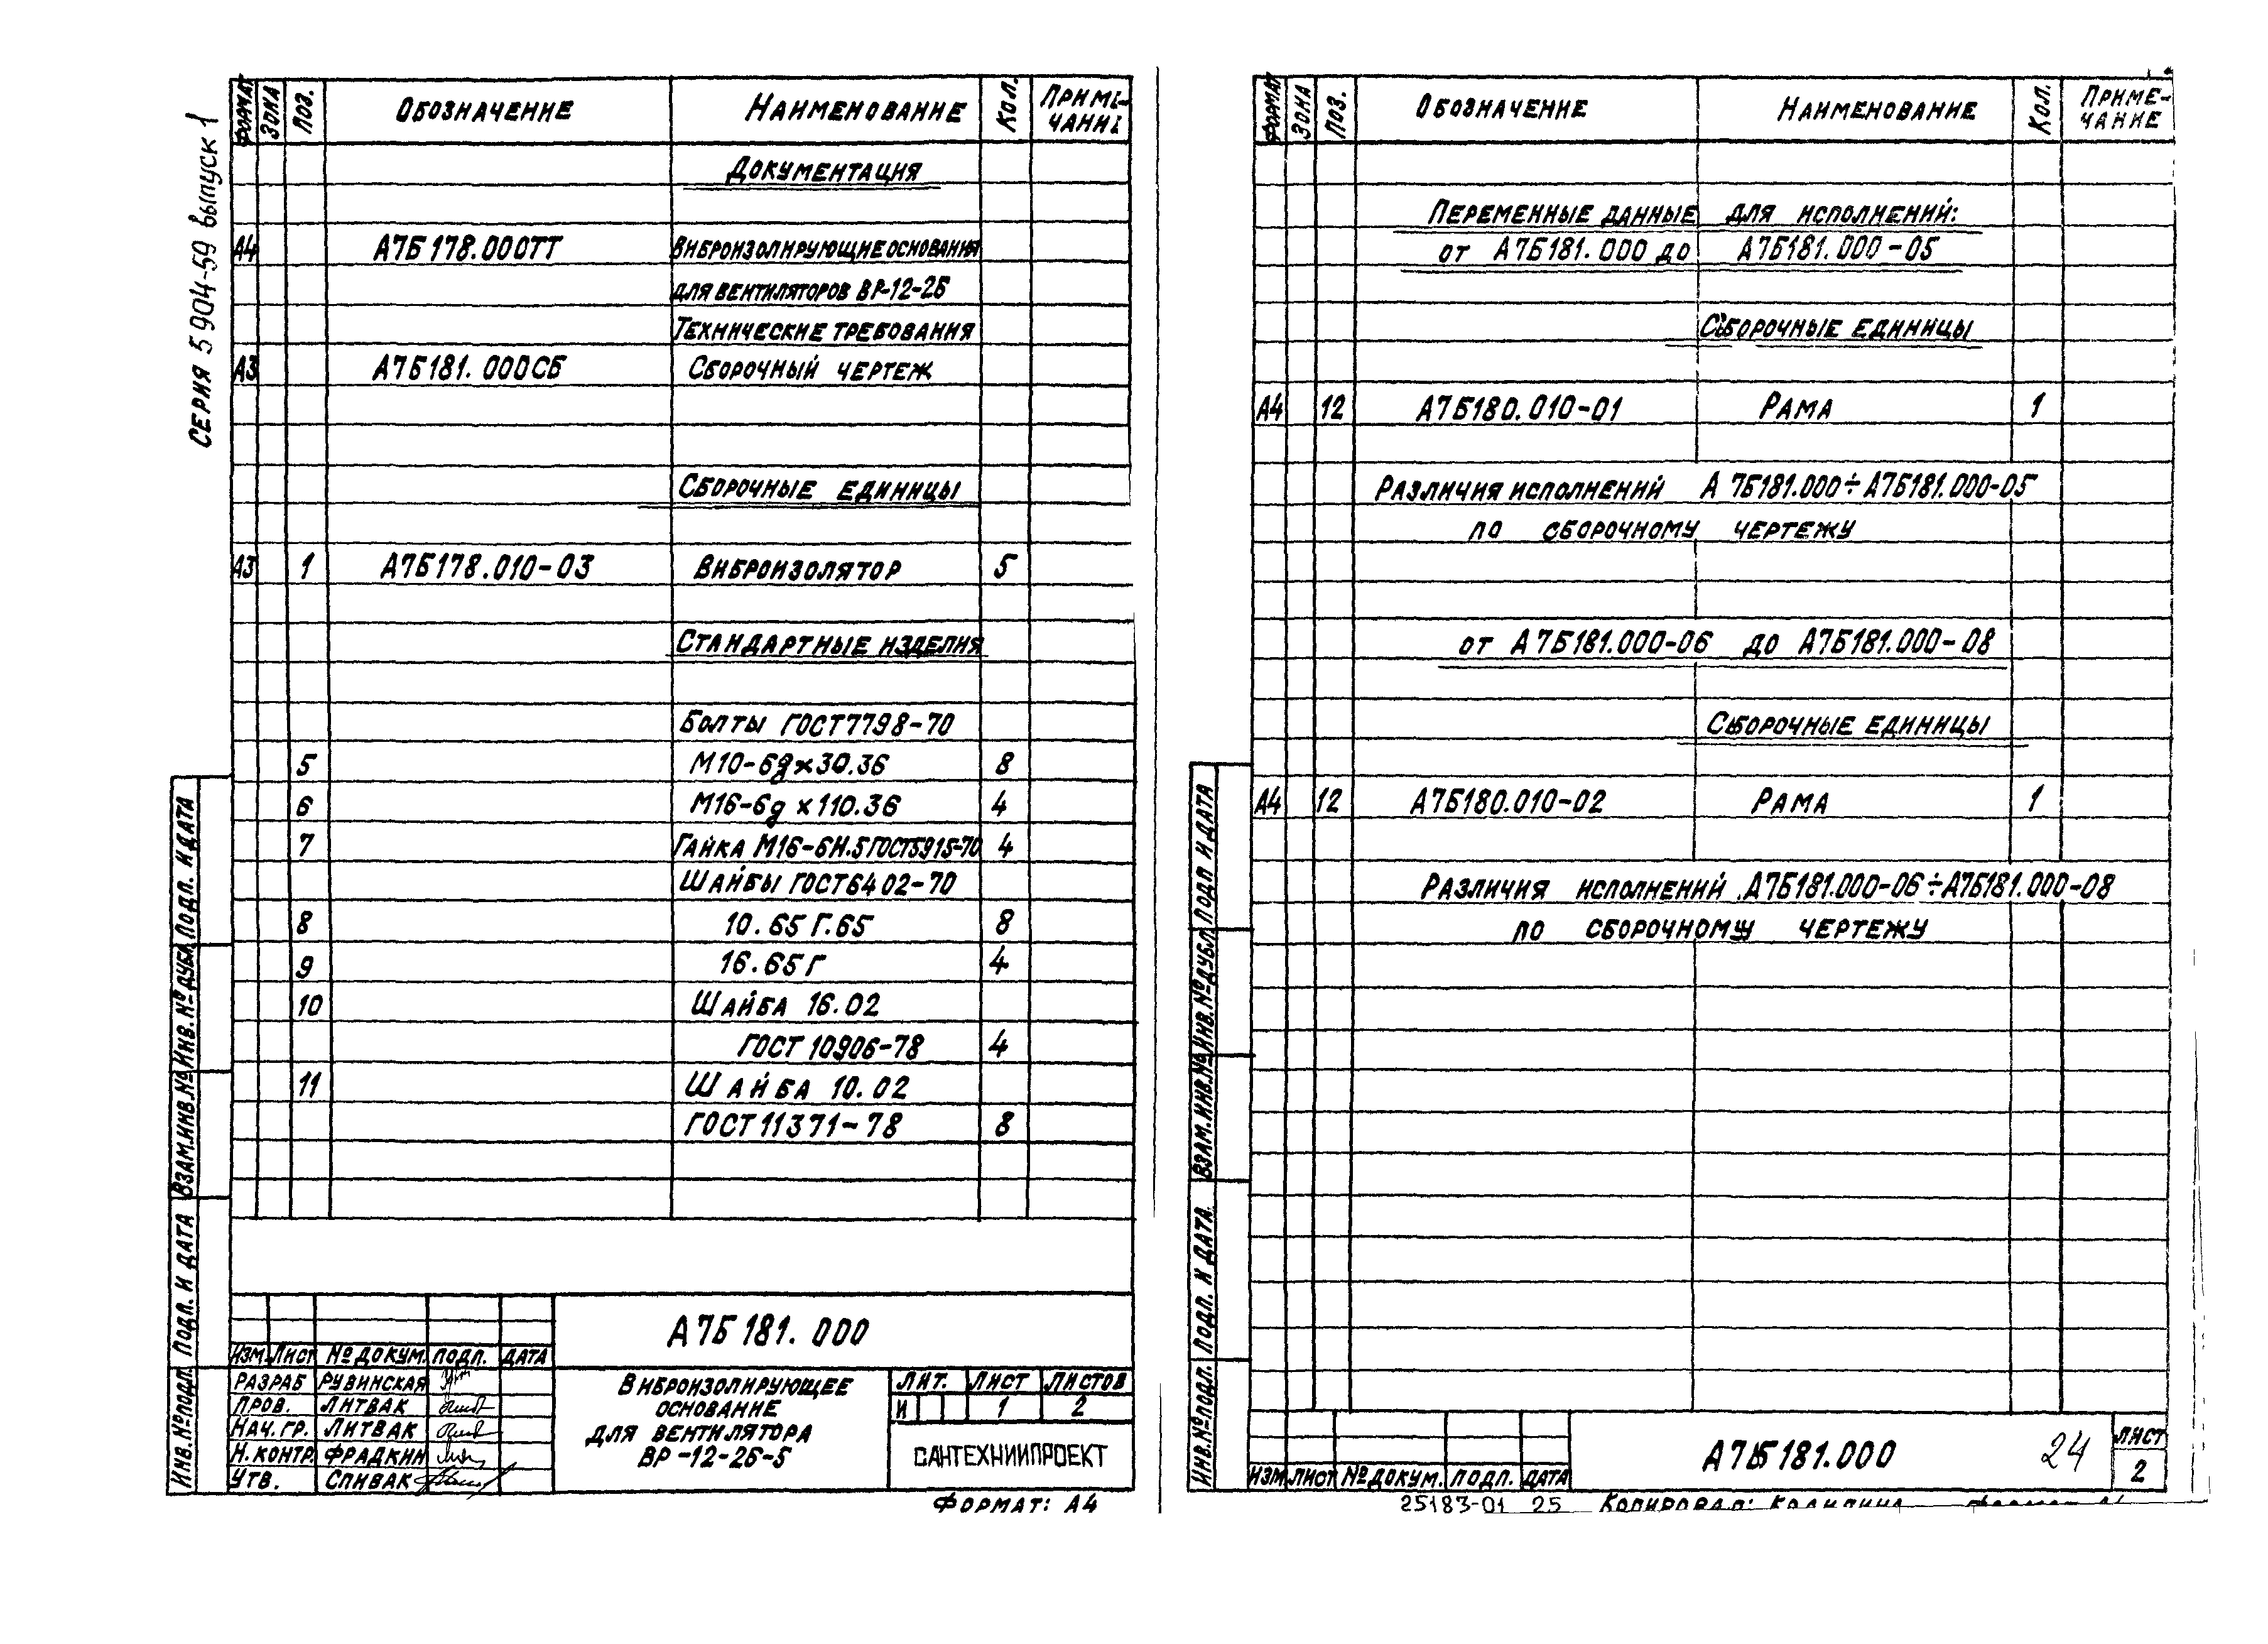 СЕРИЯ 5904-59 выпуск 1
ФОРМАТ ЗОНА ПОЗ. ОБОЗНАЧЕНИЕ НАИМЕНОВАНИЕ КОЛ. ПРИМЕ-
ЧАНИЕ
ДОКУМЕНТАЦИЯ
А4 А7Б178.000ТТ ВИБРОИЗОЛИРУЮЩИЕ ОСНОВАНИЯ
ДЛЯ ВЕНТИЛЯТОРОВ ВР-12-26
ТЕХНИЧЕСКИЕ ТРЕБОВАНИЯ
А3 А7Б181.000СБ СБОРОЧНЫЙ ЧЕРТЕЖ
СБОРОЧНЫЕ ЕДИНИЦЫ
А3 1 А7Б178.010-03 ВИБРОИЗОЛЯТОР 5
СТАНДАРТНЫЕ ИЗДЕЛИЯ
БОЛТЫ ГОСТ7798-70
5 М10-6gх30.36 8
6 М16-6g х110.36 4
7 ГАЙКА М16-6Н.5 ГОСТ5915-70 4
ШАЙБЫ ГОСТ6402-70
8 10.65Г.65 8
9 16.65Г 4
10 ШАЙБА 16.02
ГОСТ 10906-78 4
11 ШАЙБА 10.02
ГОСТ 11371-78 8
ИНВ.№ПОДЛ. ПОДП. И ДАТА ВЗАМ.ИНВ.№ ИНВ.№ДУБЛ. ПОДП. И ДАТА
А7Б181.000
ИЗМ. ЛИСТ №ДОКУМ. ПОДП. ДАТА
РАЗРАБ РУВИНСКАЯ
ПРОВ. ЛИТВАК
НАЧ.ГР. ЛИТВАК
Н.КОНТР. ФРАДКИН
УТВ. СПИВАК
ВИБРОИЗОЛИРУЮЩЕЕ
ОСНОВАНИЕ
ДЛЯ ВЕНТИЛЯТОРА
ВР-12-26-5
ЛИТ. ЛИСТ ЛИСТОВ
И 1 2
САНТЕХНИИПРОЕКТ
ФОРМАТ: А4
ФОРМАТ ЗОНА ПОЗ. ОБОЗНАЧЕНИЕ НАИМЕНОВАНИЕ КОЛ. ПРИМЕ-
ЧАНИЕ
ПЕРЕМЕННЫЕ ДАННЫЕ ДЛЯ ИСПОЛНЕНИЙ:
ОТ А7Б181.000 ДО А7Б181.000-05
СБОРОЧНЫЕ ЕДИНИЦЫ
А4 12 А7Б180.010-01 РАМА 1
РАЗЛИЧИЯ ИСПОЛНЕНИЙ А7Б181.000÷А7Б181.000-05
ПО СБОРОЧНОМУ ЧЕРТЕЖУ
ОТ А7Б181.000-06 ДО А7Б181.000-08
СБОРОЧНЫЕ ЕДИНИЦЫ
А4 12 А7Б180.010-02 РАМА 1
РАЗЛИЧИЯ ИСПОЛНЕНИЙ А7Б181.000-06÷А7Б181.000-08
ПО СБОРОЧНОМУ ЧЕРТЕЖУ
ИНВ.№ПОДЛ. ПОДП. И ДАТА ВЗАМ.ИНВ.№ ИНВ.№ДУБЛ ПОДП И ДАТА
ИЗМ ЛИСТ №ДОКУМ. ПОДП. ДАТА
А7Б181.000
24
ЛИСТ
2
25183-01 25 КОПИРОВАЛ: КАЛИНИНА